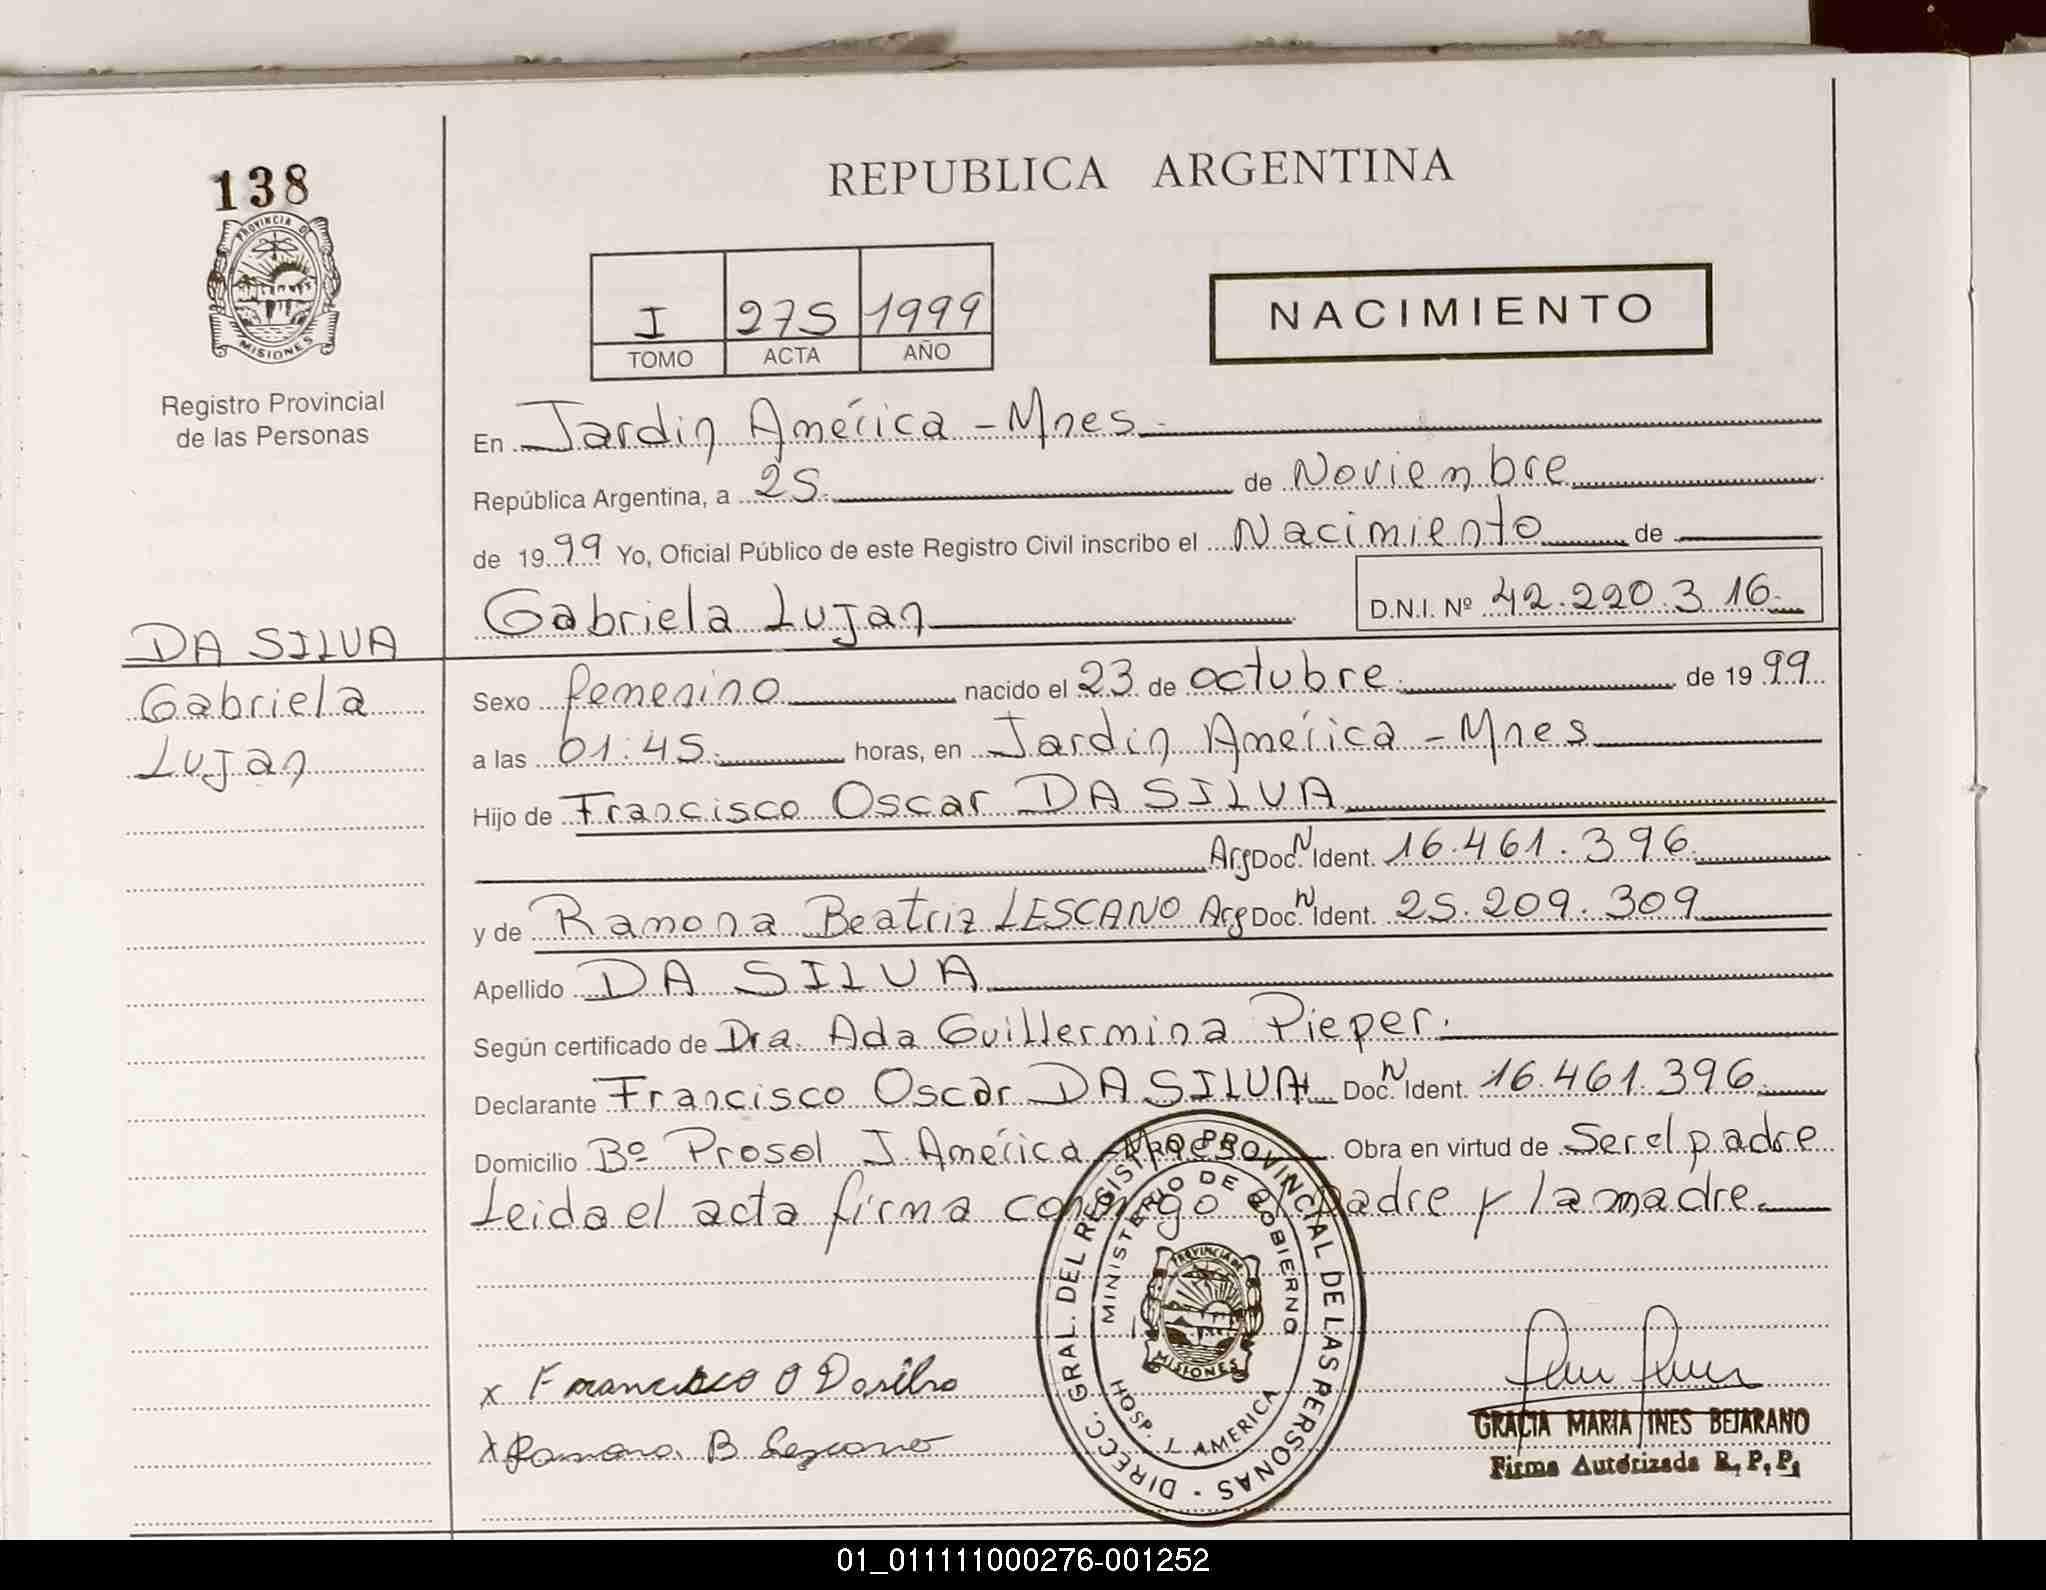 138
PROVINCIA DE
MISIONES
Registro Provincial
de las Personas
REPUBLICA ARGENTINA
I 275 1999
TOMO ACTA AÑO
NACIMIENTO
En Jardin América - Mnes.
República Argentina, a 25. de Noviembre
de 1999 Yo, Oficial Público de este Registro Civil inscribo el Nacimiento de
Gabriela Lujan D.N.I. Nº 42.220.316.
DA SILVA
Gabriela
Lujan
Sexo femenino nacido el 23 de octubre. de 1999
a las 01:45. horas, en Jardin América - Mnes
Hijo de Francisco Oscar DA SILVA
Arg Doc. N Ident. 16.461.396.
y de Ramona Beatriz LESCANO Arg Doc. N Ident. 25.209.309
Apellido DA SILVA
Según certificado de Dra. Ada Guillermina Pieper.
Declarante Francisco Oscar DA SILVA Doc. N Ident. 16.461.396.
Domicilio Bº Prosol J. América - Mnes Obra en virtud de Ser el padre
Leida el acta firma conmigo el padre y la madre.
DIRECC. GRAL. DEL REGISTRO PROVINCIAL DE LAS PERSONAS
MINISTERIO DE GOBIERNO
PROVINCIA DE
MISIONES
HOSP. J. AMERICA
x Francisco O Dasilva
x Ramona B Lezcano
GRACIA MARIA INES BEJARANO
Firma Autorizada R.P.P.
01_011111000276-001252